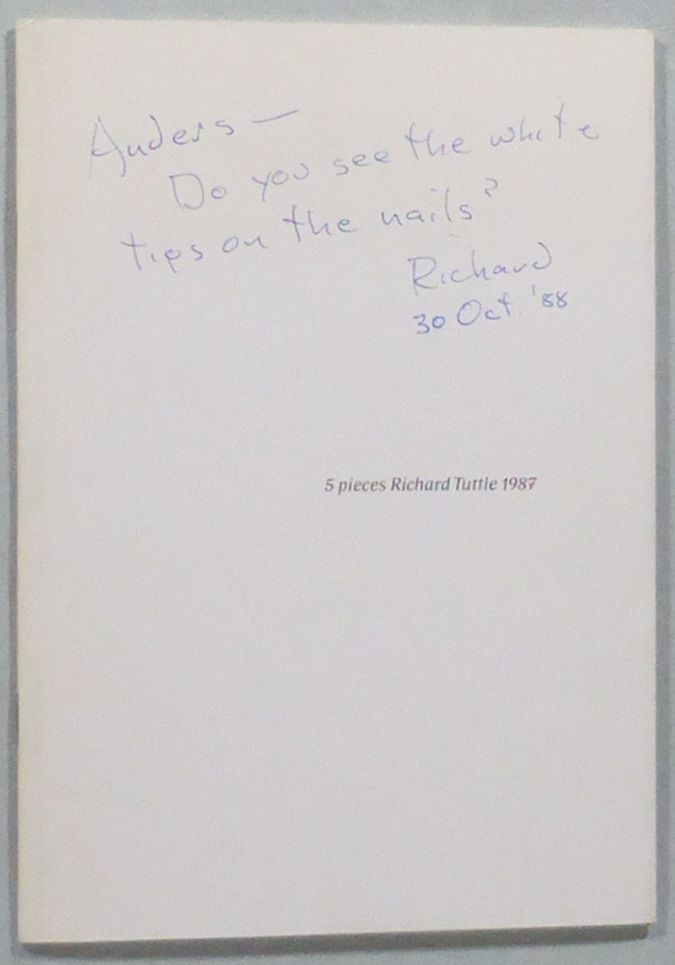 Anders —
Do you see the white
tips on the nails?
Richard
30 Oct. '88
5 pieces Richard Tuttle 1987